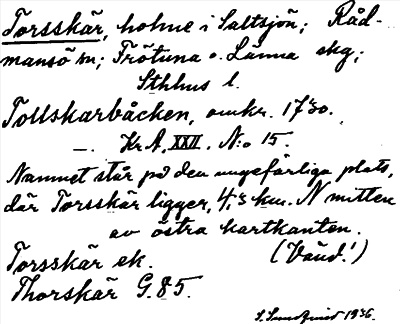 Torsskär, holme i Saltsjön; Råd-
mansö sn; Frötuna o. Länna skg;
Sthlms l.
Tollskarbåcken, omkr. 1730.
—. Kr.A. XXII. N:o 15.
Namnet står på den ungefärliga plats,
där Torsskär ligger, 4,3 km. N mitten
av östra kartkanten.
Torsskär ek. (Vänd!)
Thorskär G. 85.
S. Sundqvist 1936.